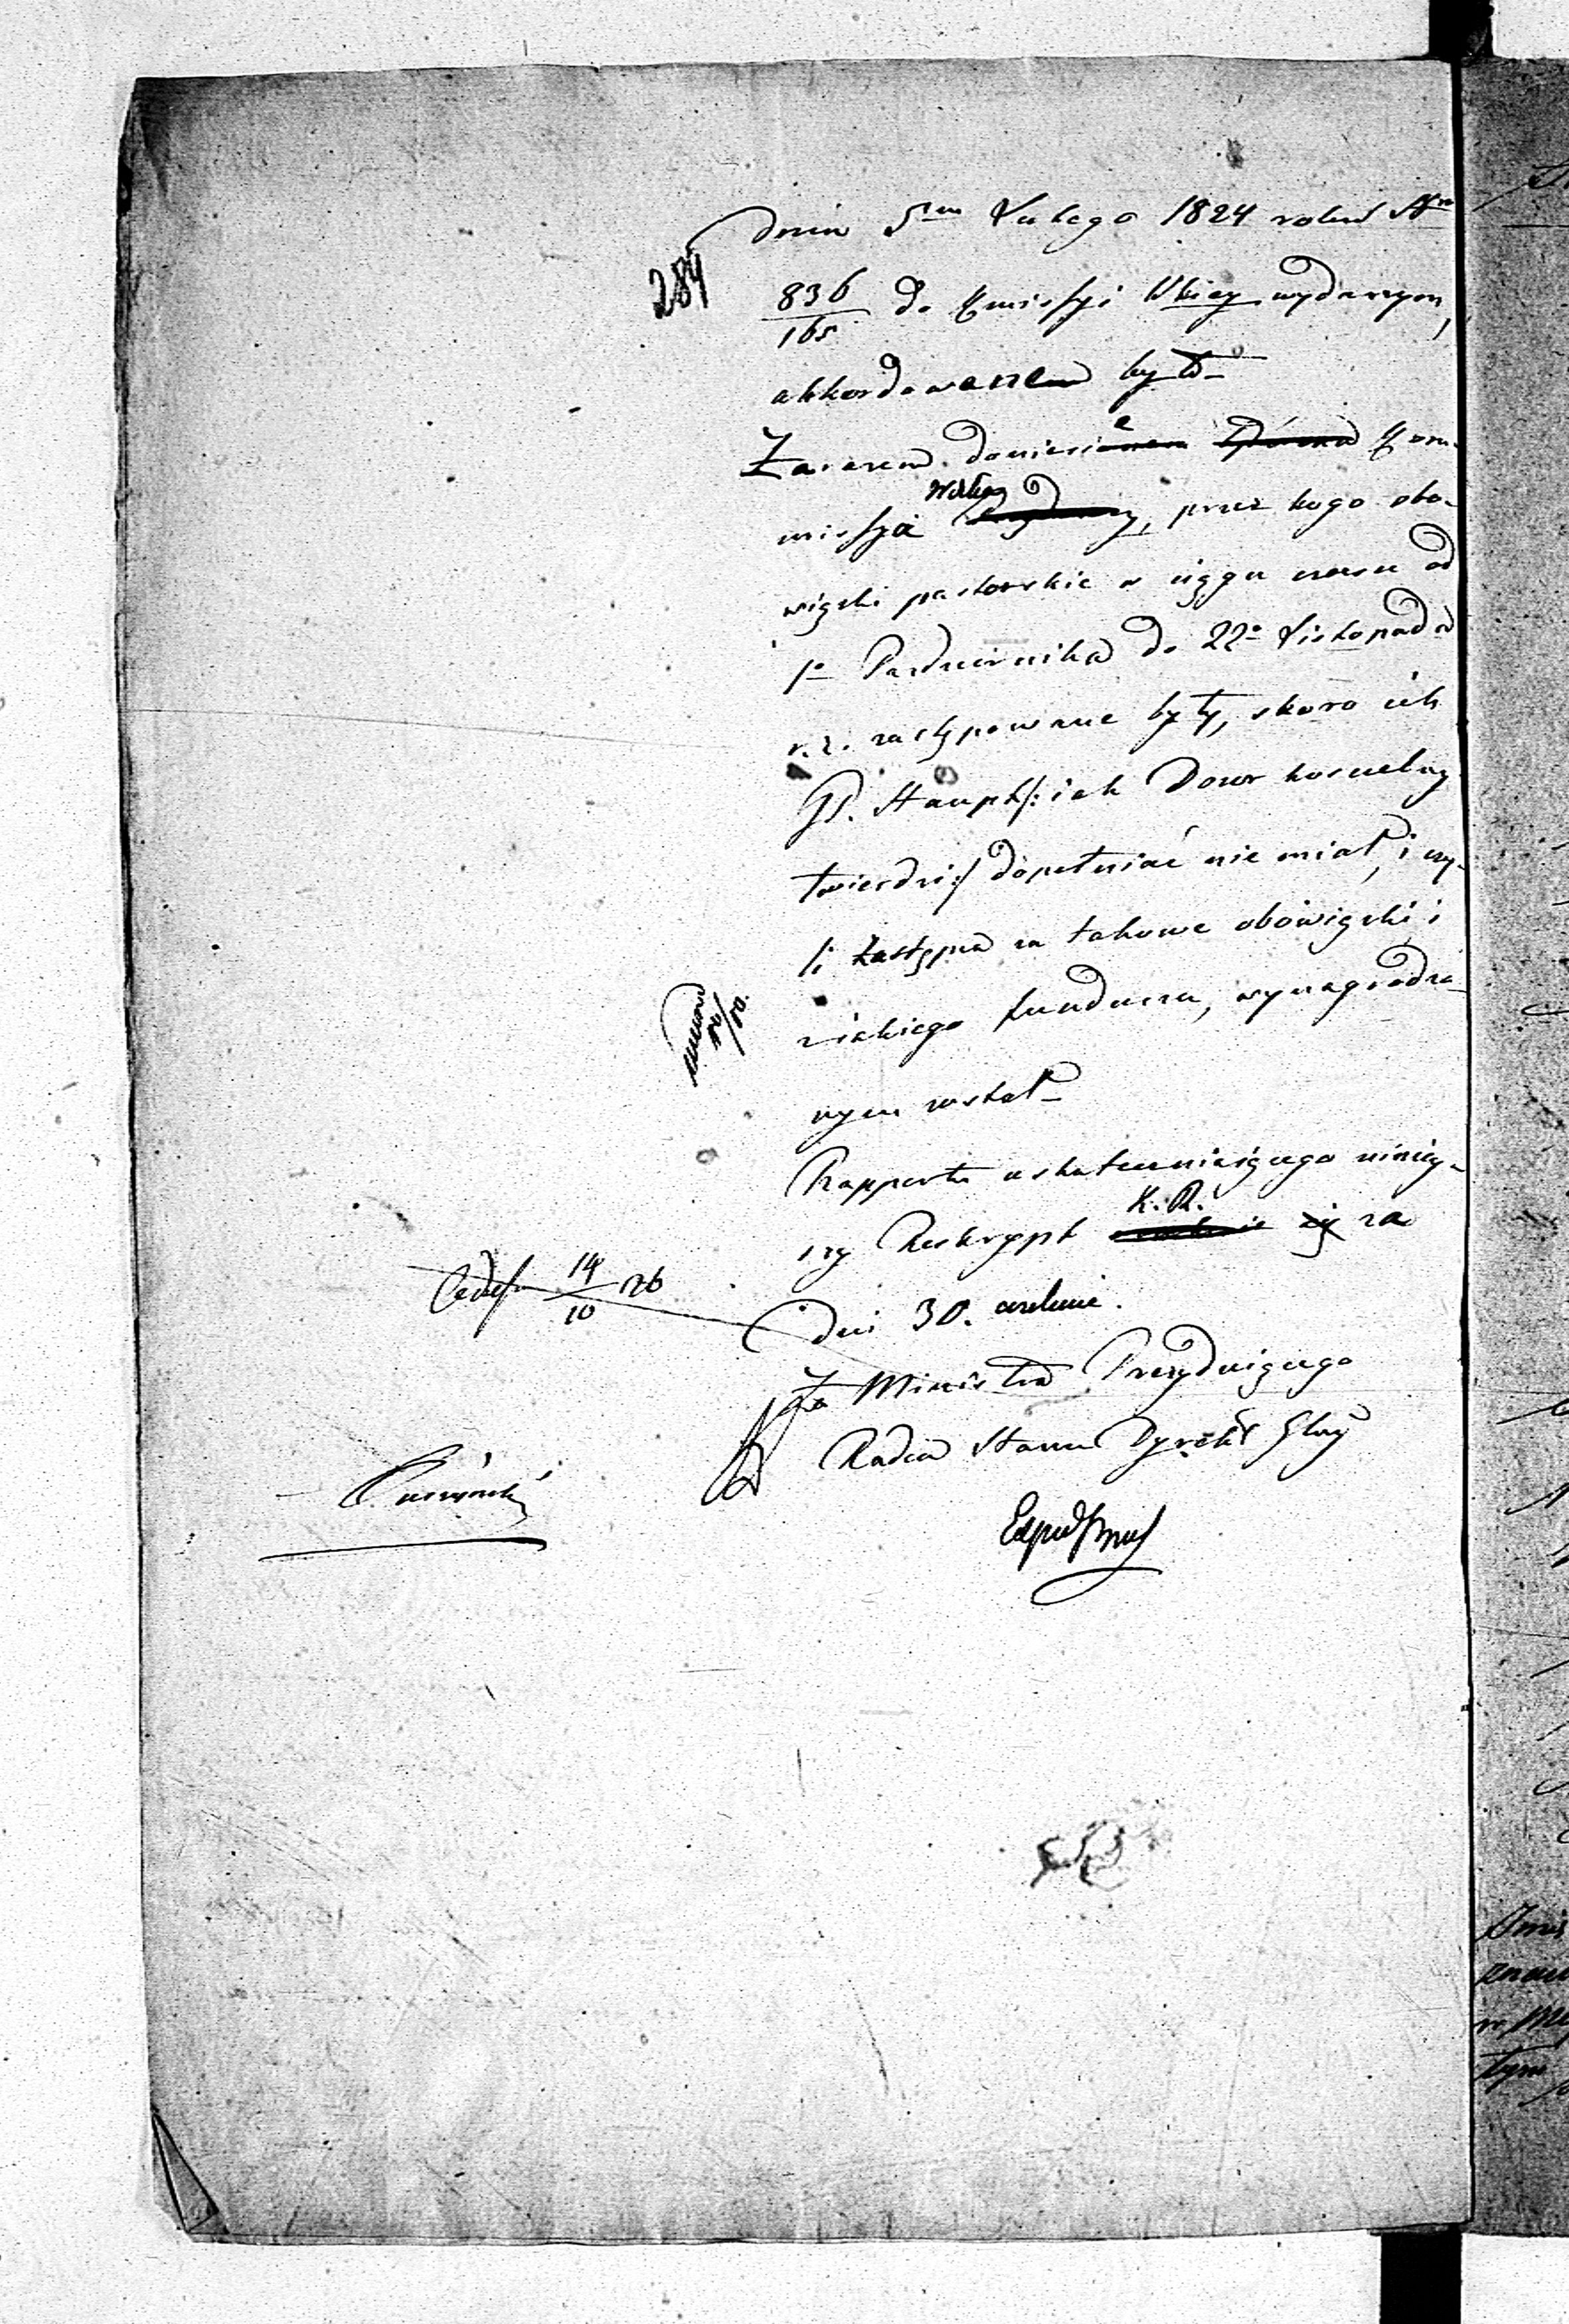 dnia 5go Lutego 1824 roku Nro
284
836/165 do Kmissyi Wkiey wydanym,
akkordowanem było
Zarazem doniesie Kom-
missya Wdzka, przez kogo obo-
wiązki pastorskie w ciągu czasu od
1o Października do 22o Listopada
r. z. zastępowane były, skoro ich
JP. Haupt /: iak Dozor koscielny
twierdzi :/ dopełniać nie miał, i czy-
li Zastępca za takowe obowiązki i
z iakiego funduszu, wynagrodzo-
nym został
Rapportu uskuteczniaiącego niniey-
szy Reskrypt K. R. za
Dni 30. czekać
14/10 26
Za Ministra Prezyduiącego
Radca Stanu Dyrekt Glny